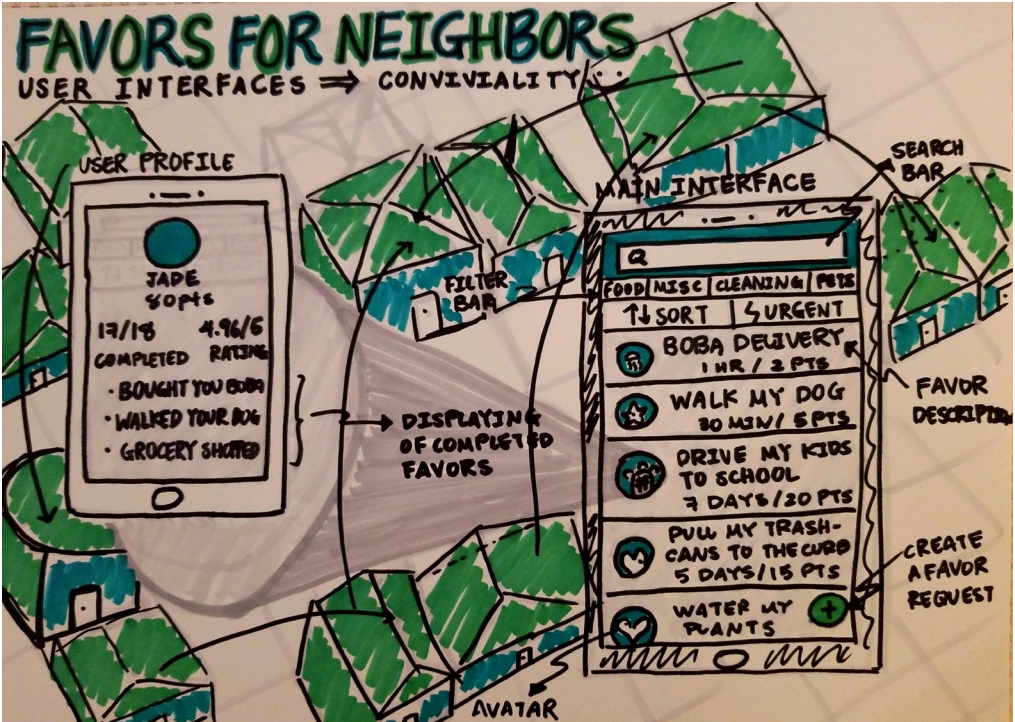 FAVORS FOR NEIGHBORS
USER INTERFACES ⇒ CONVIVIALITY :)
USER PROFILE
JADE
80pts
17/18 4.96/5
COMPLETED RATING
• BOUGHT YOU BOBA
• WALKED YOUR DOG
• GROCERY SHOPPED
DISPLAYING
OF COMPLETED
FAVORS
FILTER
BAR
MAIN INTERFACE
SEARCH
BAR
FOOD MISC CLEANING PETS
↑↓ SORT URGENT
BOBA DELIVERY
1 HR / 2 PTS
WALK MY DOG
30 MIN / 5 PTS
DRIVE MY KIDS
TO SCHOOL
7 DAYS / 20 PTS
PULL MY TRASH-
CANS TO THE CURB
5 DAYS / 15 PTS
WATER MY
PLANTS
+
FAVOR
DESCRIPTION
CREATE
A FAVOR
REQUEST
AVATAR